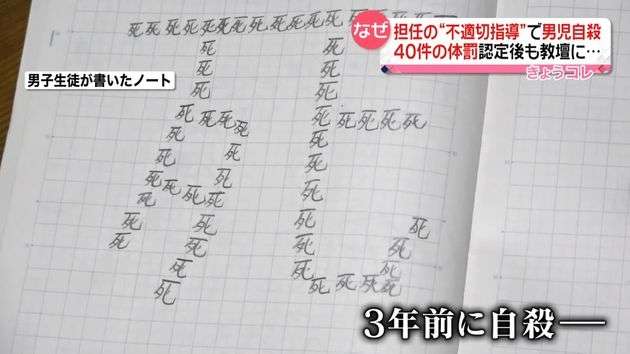 なぜ 担任の“不適切指導”で男児自殺
40件の体罰認定後も教壇に…
きょうコレ
男子生徒が書いたノート
死死死死死死死死死死死死死
死 死
死 死
死 死
死 死 死 死 死 死 死 死 死
死 死
死 死 死
死 死 死 死
死 死 死
死 死 死 死
死 死 死 死
死 死 死
死 死 死 死 死
3年前に自殺──